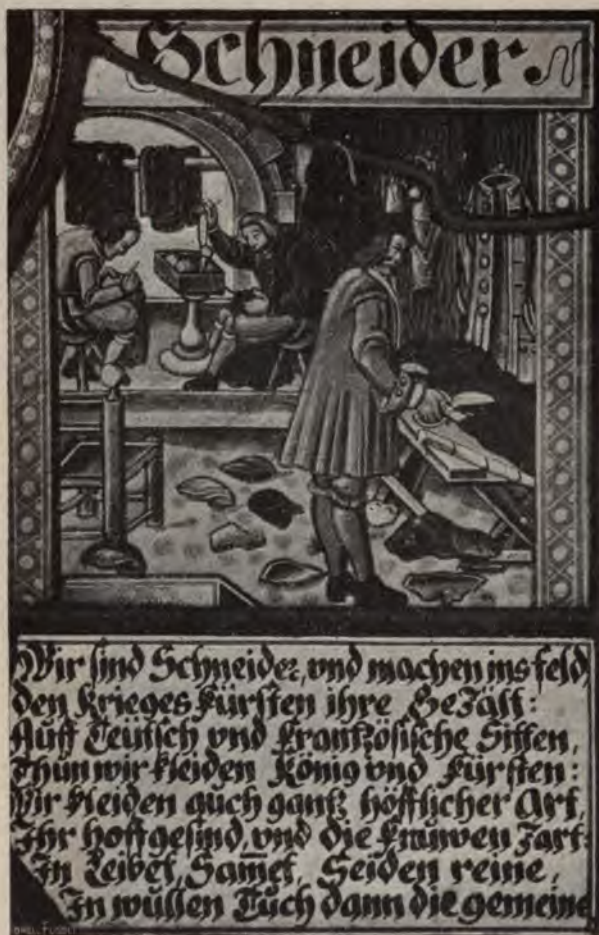 Schneider
Wir sind Schneider, vnd machen ins feld,
den Krieges Fürsten ihre GeZält:
Auff Teütsch vnd Frantzösische Sitten,
Thün wir kleiden König vnd Fürsten:
Wir kleiden aüch gantz höfflicher Art,
Ihr hoffgesind, vnd die Fraüwen Zart:
In Samet, Seiden reine,
In wüllen Tüch dann die gemeine
ORELL FÜSSLI